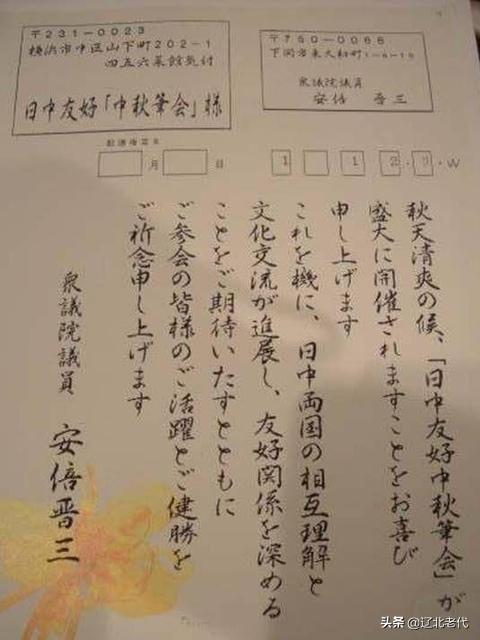 〒231-0023
横浜市中区山下町202-1
四五六菜館気付
日中友好「中秋筆会」様
〒750-0066
下関市東大和町1-8-16
衆議院議員
安倍 晋三
配達指定日
月 日
秋天清爽の候、「日中友好中秋筆会」が
盛大に開催されますことをお喜び
申し上げます
これを機に、日中両国の相互理解と
文化交流が進展し、友好関係を深める
ことをご期待いたすとともに
ご参会の皆様のご活躍とご健勝を
ご祈念申し上げます
衆議院議員 安倍晋三
头条 @辽北老代